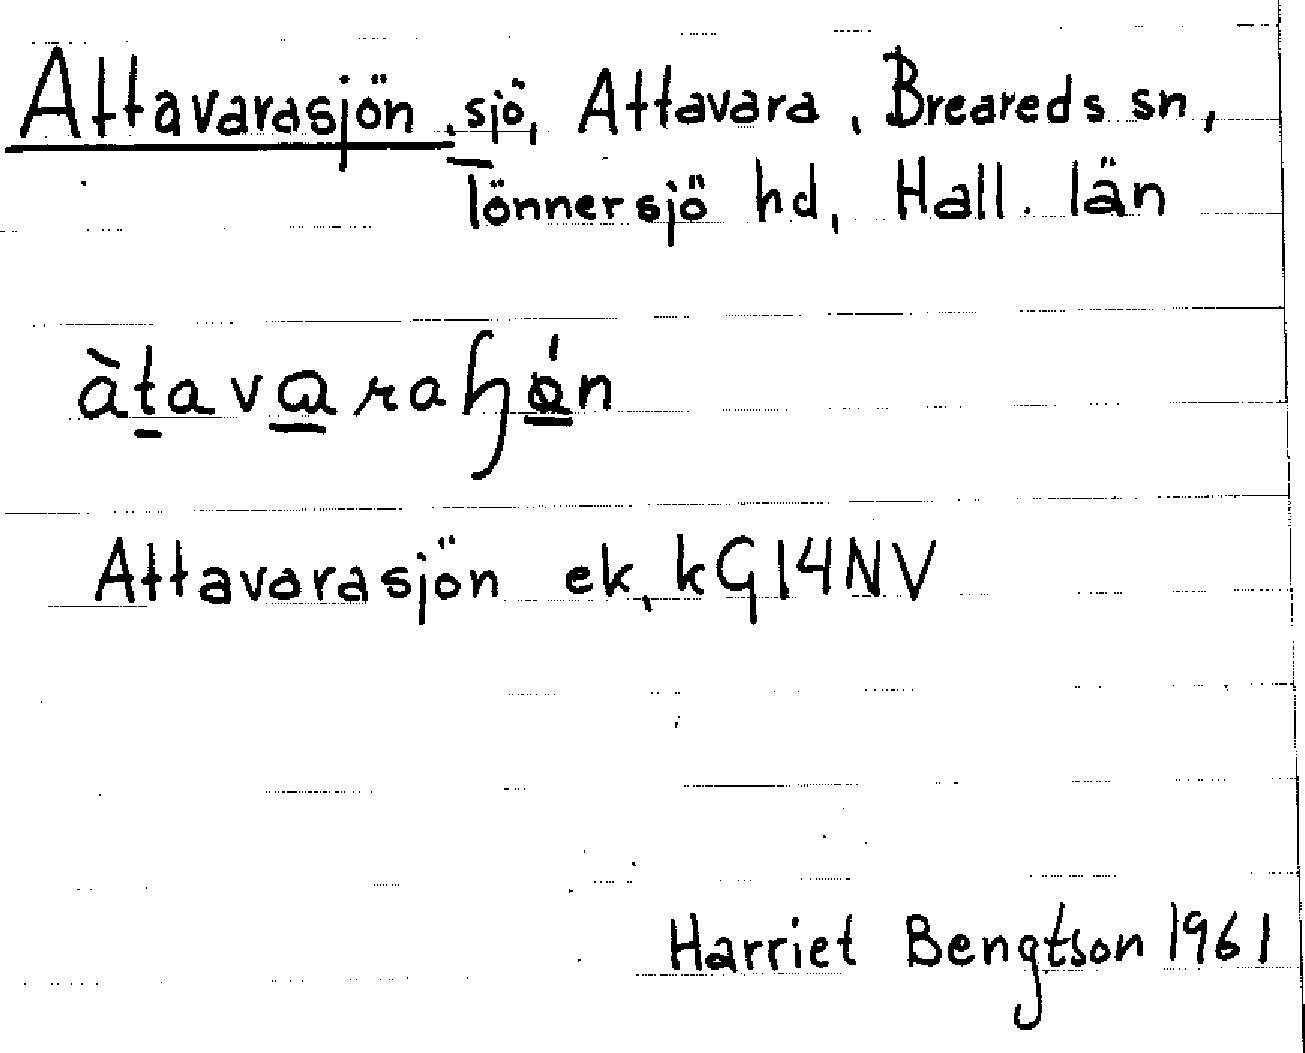 Attavarasjön, sjö, Attavara, Breareds sn,
Tönnersjö hd, Hall. län
àtavɑraɧǿn
Attavarasjön ek, kG14NV
Harriet Bengtson 1961